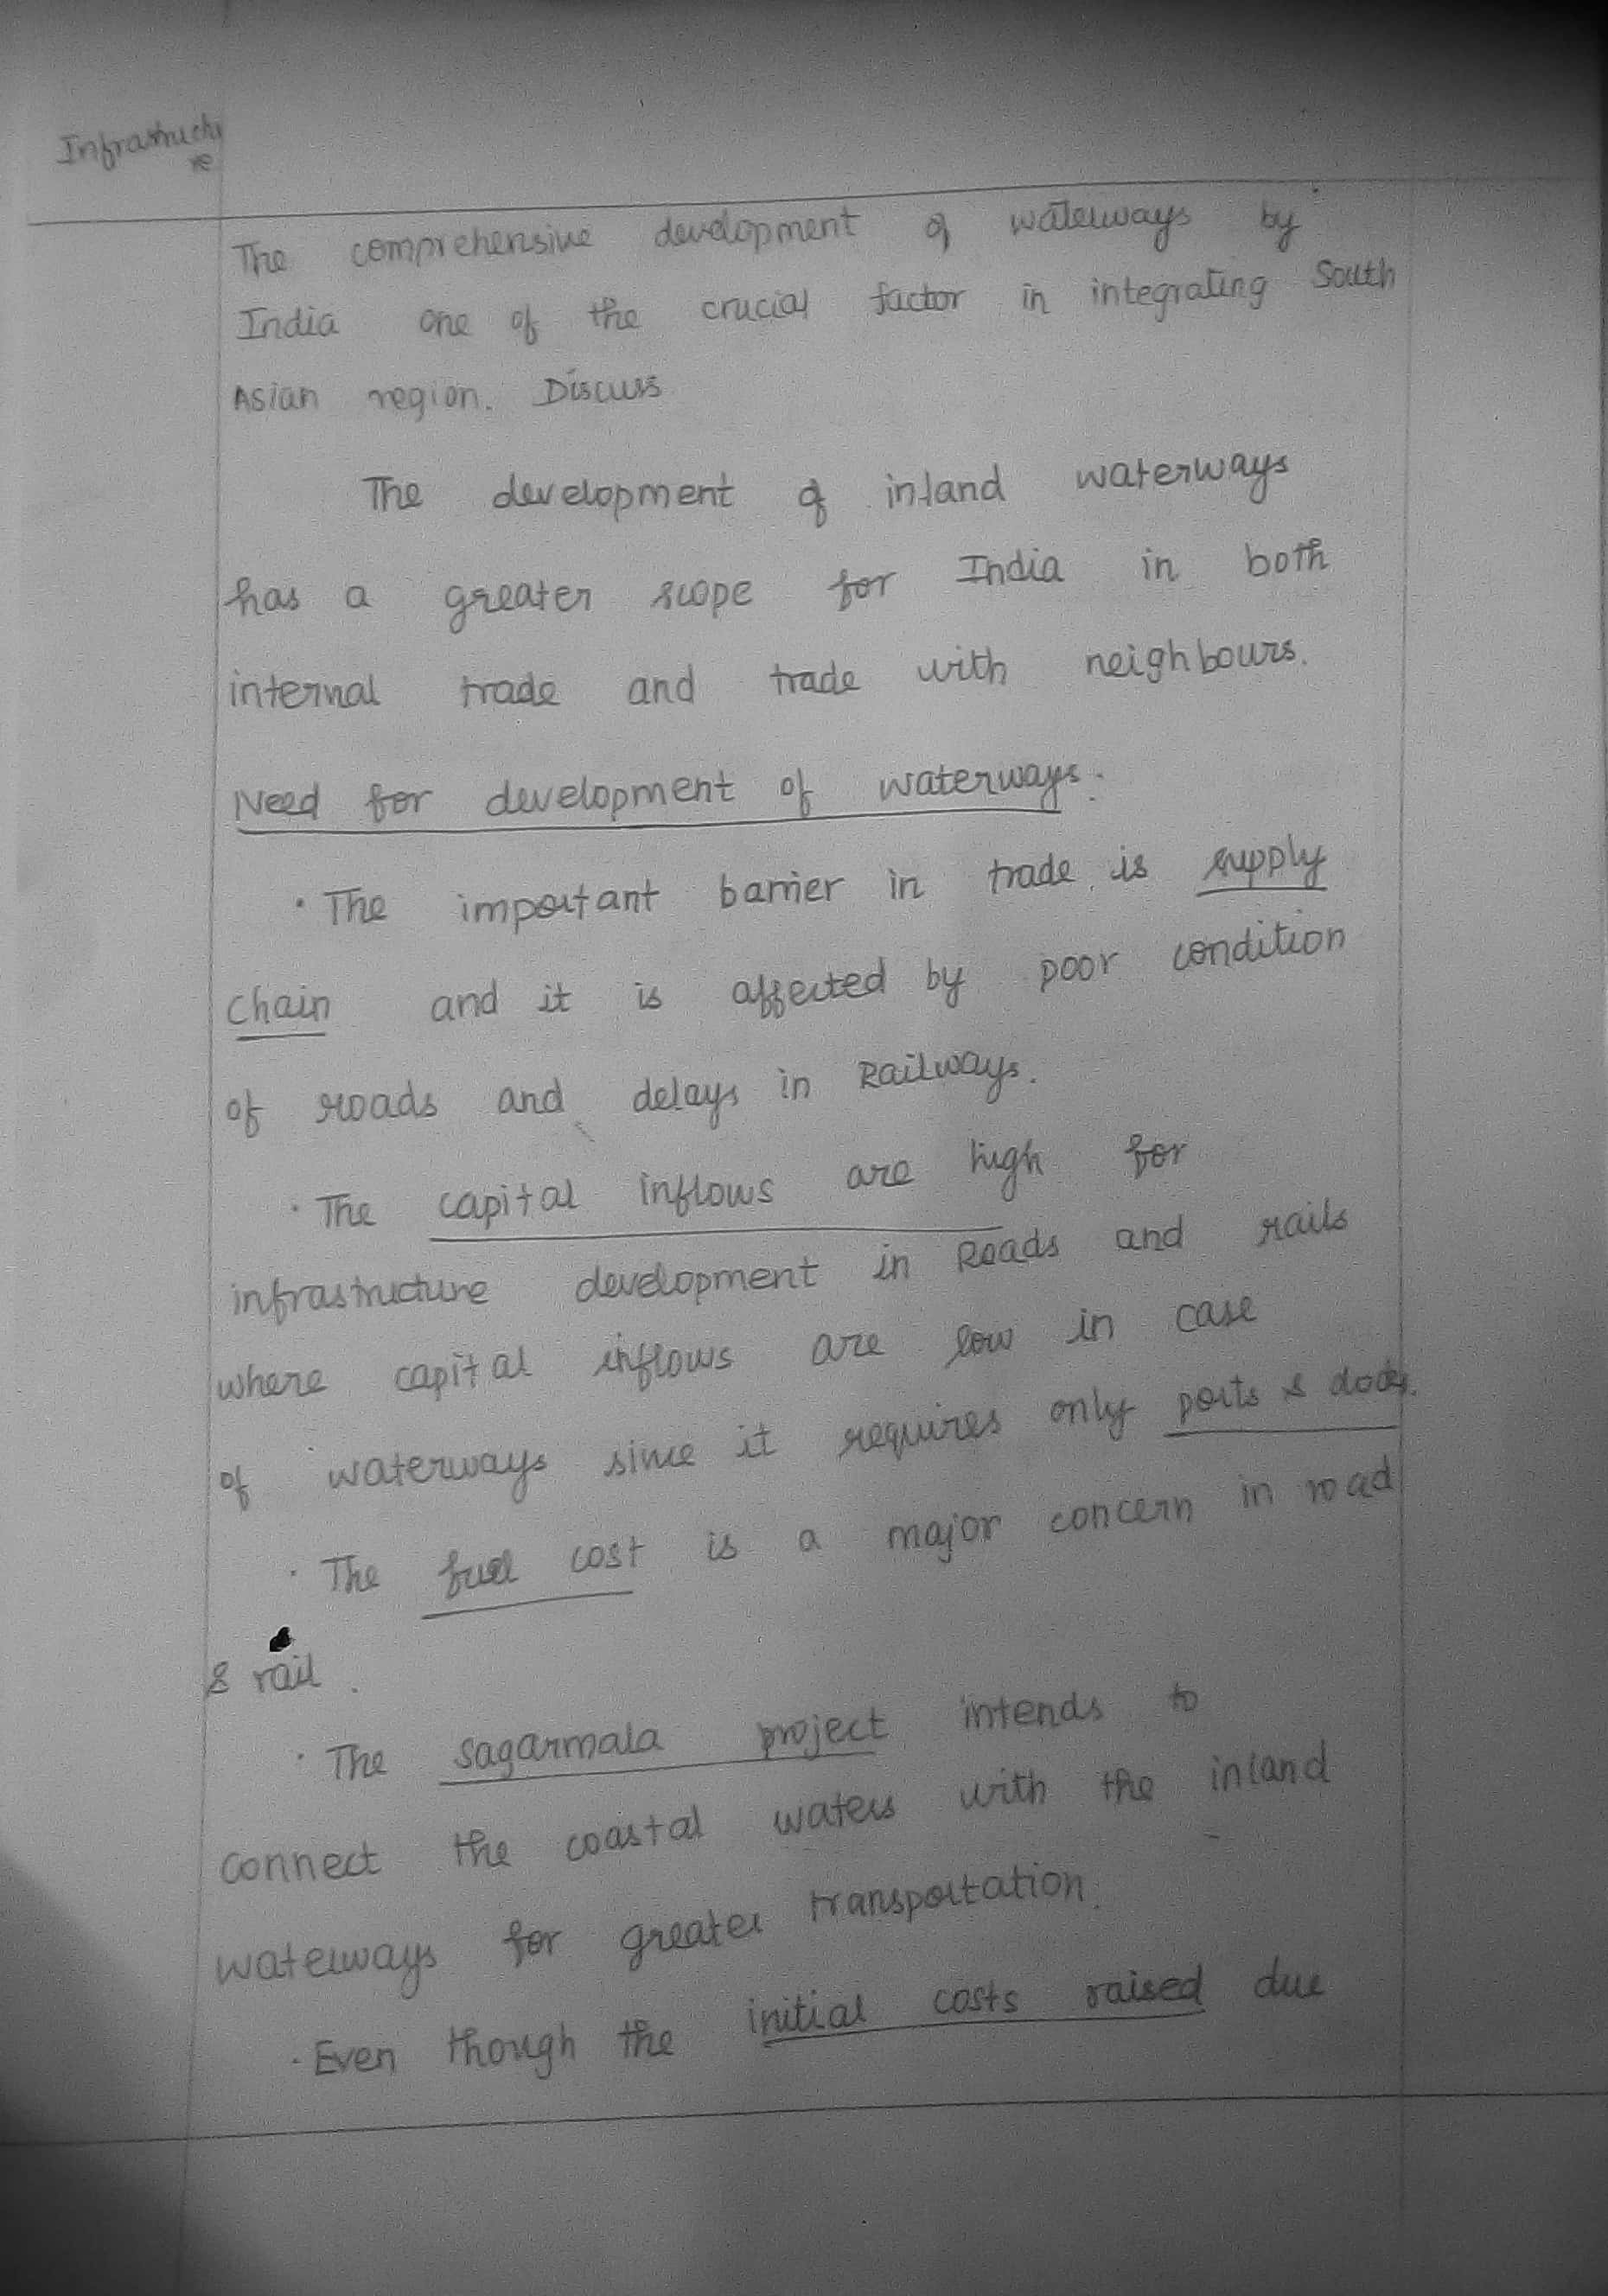 Infrastructu
re
The comprehensive development of waterways by
India one of the crucial factor in integrating South
Asian region. Discuss
The development of inland waterways
has a greater scope for India in both
internal trade and trade with neighbours.
Need for development of waterways:
· The important barrier in trade is supply
chain and it is affected by poor condition
of roads and delays in Railways.
· The capital inflows are high for
infrastructure development in Roads and rails
where capital inflows are low in case
of waterways since it requires only ports & docks.
· The fuel cost is a major concern in road
& rail.
· The sagarmala project intends to
connect the coastal waters with the inland
waterways for greater transportation.
· Even though the initial costs raised due